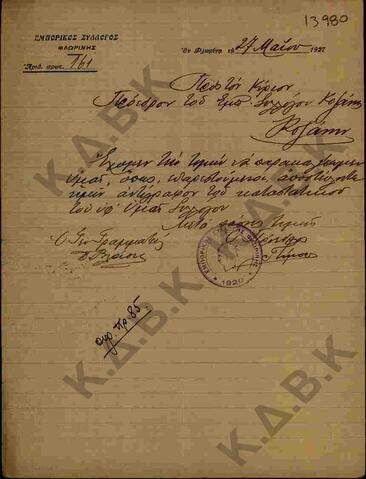 13980
ΕΜΠΟΡΙΚΟΣ ΣΥΛΛΟΓΟΣ
ΦΛΩΡΙΝΗΣ
Ἀριθ. πρωτ. 161
Ἐν Φλωρίνῃ 27 Μαΐου 1927
Πρὸς τὸν Κύριον
Πρόεδρον τοῦ Ἐμπ. Συλλόγου Κοζάνης
Κοζάνην
Ἔχομεν τὴν τιμὴν νὰ παρακαλέσωμεν
ὑμᾶς, ὅπως, ἀποστείλητε
ἡμῖν ἀντίγραφον τοῦ καταστατικοῦ
τοῦ ὑφ' ὑμᾶς Συλλόγου.
Μετὰ τιμῆς
Ὁ Γεν. Γραμματεύς
Ὁ Πρόεδρος
1920
αρ. πρ. 85.
Κ.Δ.Β.Κ
Κ.Δ.Β.Κ
Κ.Δ.Β.Κ